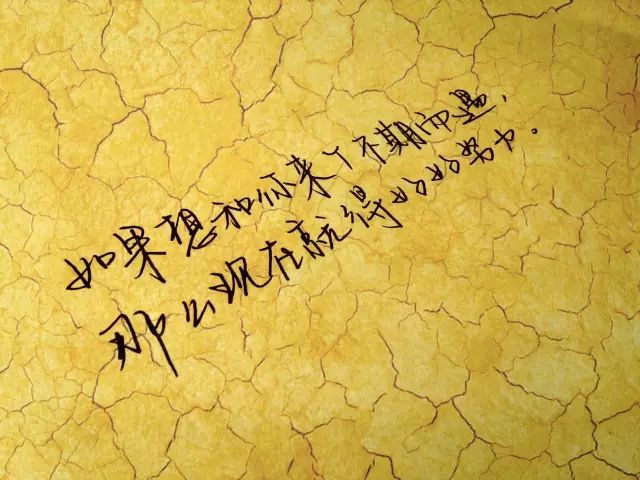 如果想和你来个不期而遇,
那么现在就得好好努力。